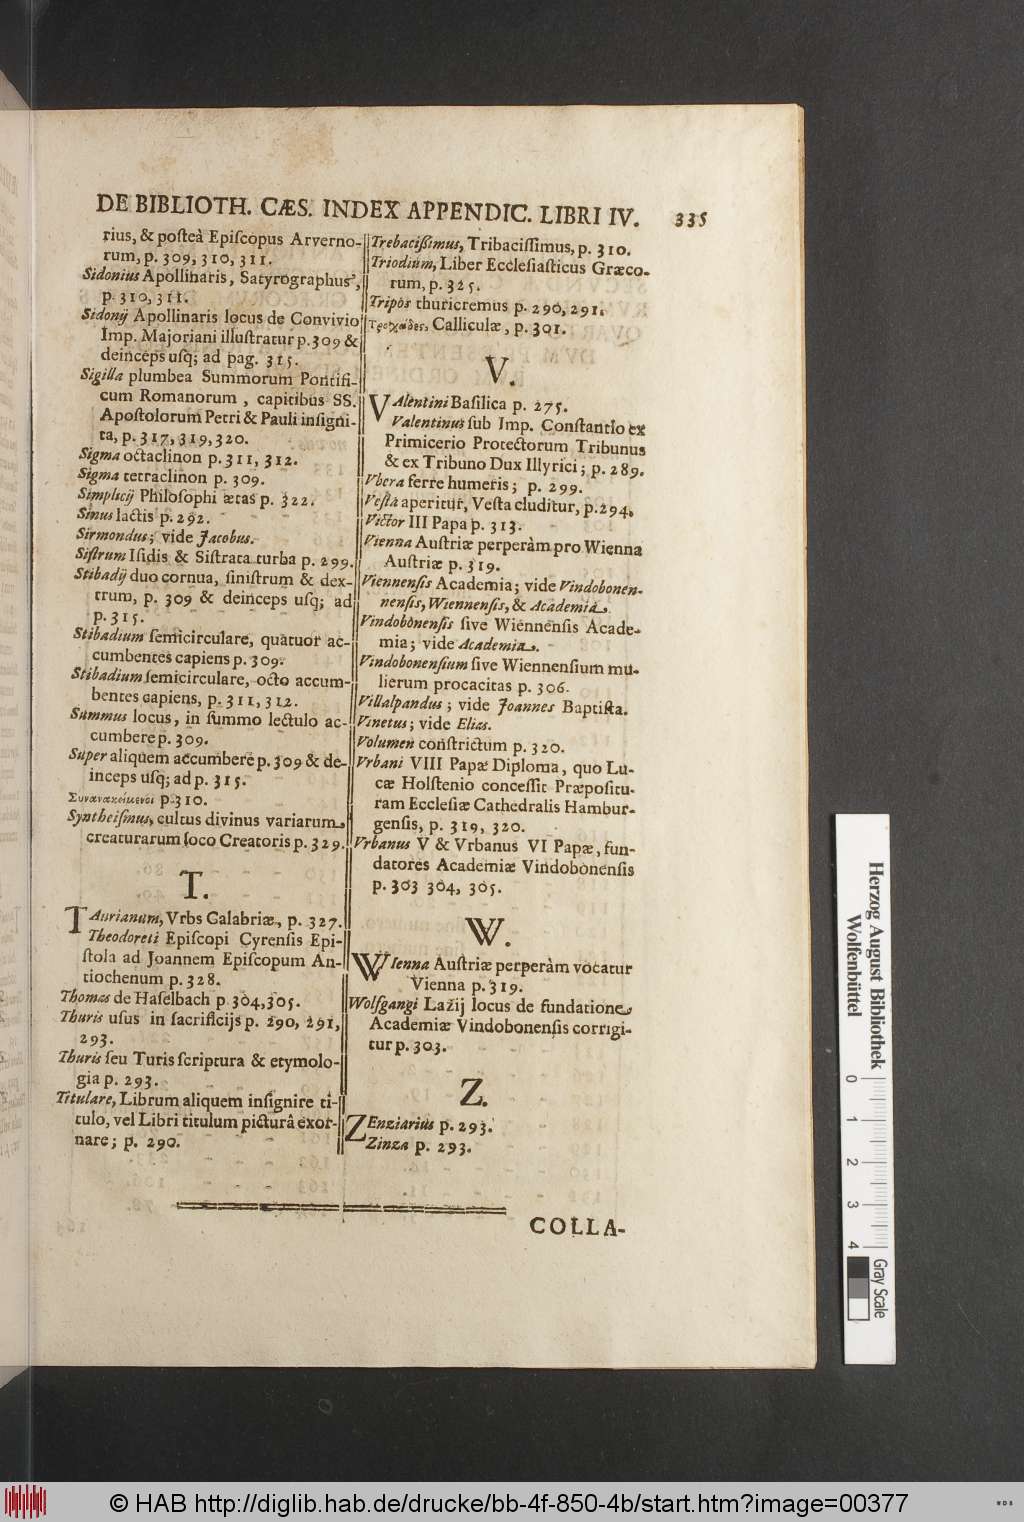 DE BIBLIOTH. CÆS. INDEX APPENDIC. LIBRI IV. 335
rius, & posteà Episcopus Arverno-
rum, p. 309, 310, 311.
Sidonius Apollinaris, Satyrographus,
p. 310, 311.
Sidonij Apollinaris locus de Convivio
Imp. Majoriani illustratur p. 309 &
deinceps usq; ad pag. 315.
Sigilla plumbea Summorum Pontifi-
cum Romanorum, capitibus SS.
Apostolorum Petri & Pauli insigni-
ta, p. 317, 319, 320.
Sigma octaclinon p. 311, 312.
Sigma tetraclinon p. 309.
Simplicij Philosophi ætas p. 322.
Sinus lactis p. 292.
Sirmondus; vide Jacobus.
Sistrum Isidis & Sistrata turba p. 299.
Stibadij duo cornua, sinistrum & dex-
trum, p. 309 & deinceps usq; ad
p. 315.
Stibadium semicirculare, quatuor ac-
cumbentes capiens p. 309.
Stibadium semicirculare, octo accum-
bentes capiens, p. 311, 312.
Summus locus, in summo lectulo ac-
cumbere p. 309.
Super aliquem accumbere p. 309 & de-
inceps usq; ad p. 315.
Συνανακείμενοι p. 310.
Syntheismus, cultus divinus variarum
creaturarum loco Creatoris p. 329.
T.
TAurianum, Vrbs Calabriæ, p. 327.
Theodoreti Episcopi Cyrensis Epi-
stola ad Joannem Episcopum An-
tiochenum p. 328.
Thomas de Haselbach p. 304, 305.
Thuris usus in sacrificijs p. 290, 291,
293.
Thuris seu Turis scriptura & etymolo-
gia p. 293.
Titulare, Librum aliquem insignire ti-
tulo, vel Libri titulum picturâ exor-
nare; p. 290.
Trebacissimus, Tribacissimus, p. 310.
Triodium, Liber Ecclesiasticus Græco-
rum, p. 325.
Tripòs thuricremus p. 290, 291.
Τροχάδες, Calliculæ, p. 301.
V.
VAlentini Basilica p. 275.
Valentinus sub Imp. Constantio ex
Primicerio Protectorum Tribunus
& ex Tribuno Dux Illyrici; p. 289.
Vbera ferre humeris; p. 299.
Vesta aperitur, Vesta cluditur, p. 294.
Victor III Papa p. 313.
Vienna Austriæ perperàm pro Wienna
Austriæ p. 319.
Viennensis Academia; vide Vindobonen-
nensis, Wiennensis, & Academia.
Vindobonensis sive Wiennensis Acade-
mia; vide Academia.
Vindobonensium sive Wiennensium mu-
lierum procacitas p. 306.
Villalpandus; vide Joannes Baptista.
Vinetus; vide Elias.
Volumen constrictum p. 320.
Vrbani VIII Papæ Diploma, quo Lu-
cæ Holstenio concessit Præpositu-
ram Ecclesiæ Cathedralis Hambur-
gensis, p. 319, 320.
Vrbanus V & Vrbanus VI Papæ, fun-
datores Academiæ Vindobonensis
p. 303 304, 305.
W.
WIenna Austriæ perperàm vocatur
Vienna p. 319.
Wolfgangi Lazij locus de fundatione
Academiæ Vindobonensis corrigi-
tur p. 303.
Z.
ZEnziarius p. 293.
Zinza p. 293.
COLLA-
Herzog August Bibliothek
Wolfenbüttel
0 1 2 3 4
Gray Scale
© HAB http://diglib.hab.de/drucke/bb-4f-850-4b/start.htm?image=00377